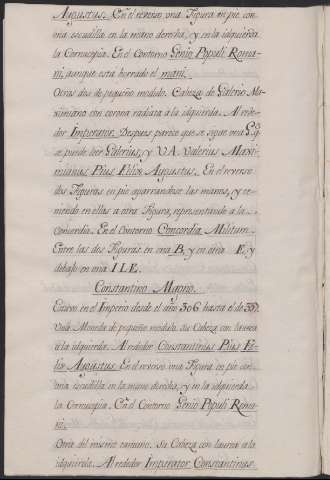 Augustus. En el reverso una Figura en pie con
una escudilla en la mano derecha, y en la izquierda
la Cornucopia. En el Contorno Genio Populi Roma-
ni, aunque esta borrado el mani.
Otras dos de pequeño modulo. Cabeza de Galerio Ma-
ximiano con corona radiata a la izquierda. Al rede-
dor Imperator. Despues parece que se sigue una
se puede leer Galerius, y V A. Valerius Maxi-
mianus Pius Felix Augustus. En el reverso
dos Figuras en pie agarrandose las manos, y te-
niendo en ellas a otra Figura, representando a la
Concordia. En el Contorno Concordia Militum.
Entre las dos Figuras en una B, y en otra E, y
debajo en una I L E.
Constantino Magno.
Estuvo en el Imperio desde el año 306 hasta el de 337.
Una Moneda de pequeño modulo. Su Cabeza con laurea
a la izquierda. Al rededor Constantinus Pius Fe-
lix Augustus. En el reverso una Figura en pie con
una escudilla en la mano derecha, y en la izquierda
la Cornucopia. En el Contorno Genio Populi Roma-
ni.
Otra del mismo tamaño. Su Cabeza con laurea a la
izquierda. Al rededor Imperator Constantinus.